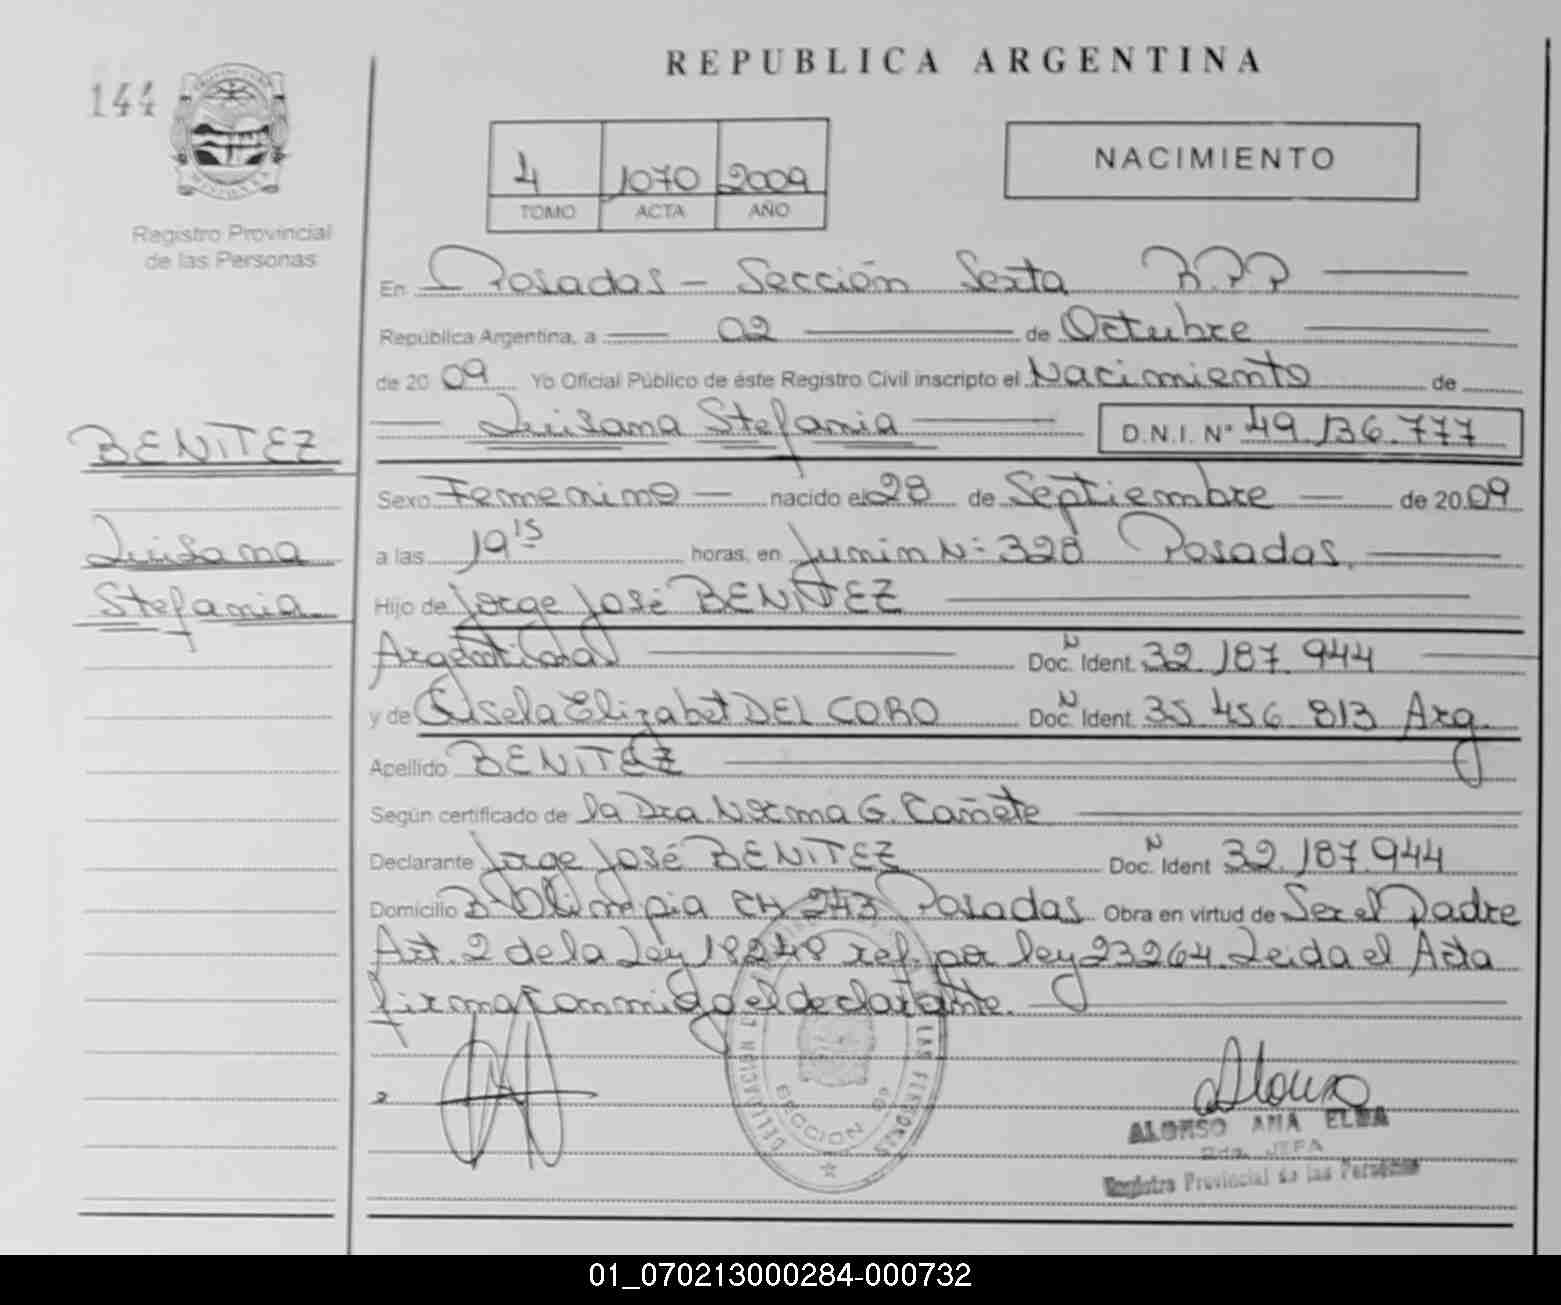 REPUBLICA ARGENTINA
144
4 1070 2009
TOMO ACTA AÑO
NACIMIENTO
Registro Provincial
de las Personas
En Posadas - Sección Sexta R.P.P
República Argentina, a 02 de Octubre
de 20 09 Yo Oficial Público de éste Registro Civil inscripto el Nacimiento de
Luisana Stefania D.N.I. Nº 49.136.777
BENITEZ
Luisana
Stefania
Sexo Femenino nacido el 28 de Septiembre de 20 09
a las 19 15 horas, en Junin Nº 328 Posadas.
Hijo de Jorge José BENITEZ
Argentina Doc. Ident. N 32.187.944
y de Gisela Elizabet DEL CORO Doc. Ident. N 35.456.813 Arg.
Apellido BENITEZ
Según certificado de la Dra. Norma G. Cañete
Declarante Jorge José BENITEZ Doc. Ident N 32.187.944
Domicilio Bº Olimpia CH 243 Posadas Obra en virtud de Ser el Padre
Art. 2 de la Ley 18248 ref. por ley 23264. Leida el Acta
firma conmigo el declarante.
SECCION
ALONSO ANA ELBA
JEFA
Registro Provincial de las Personas
01_070213000284-000732